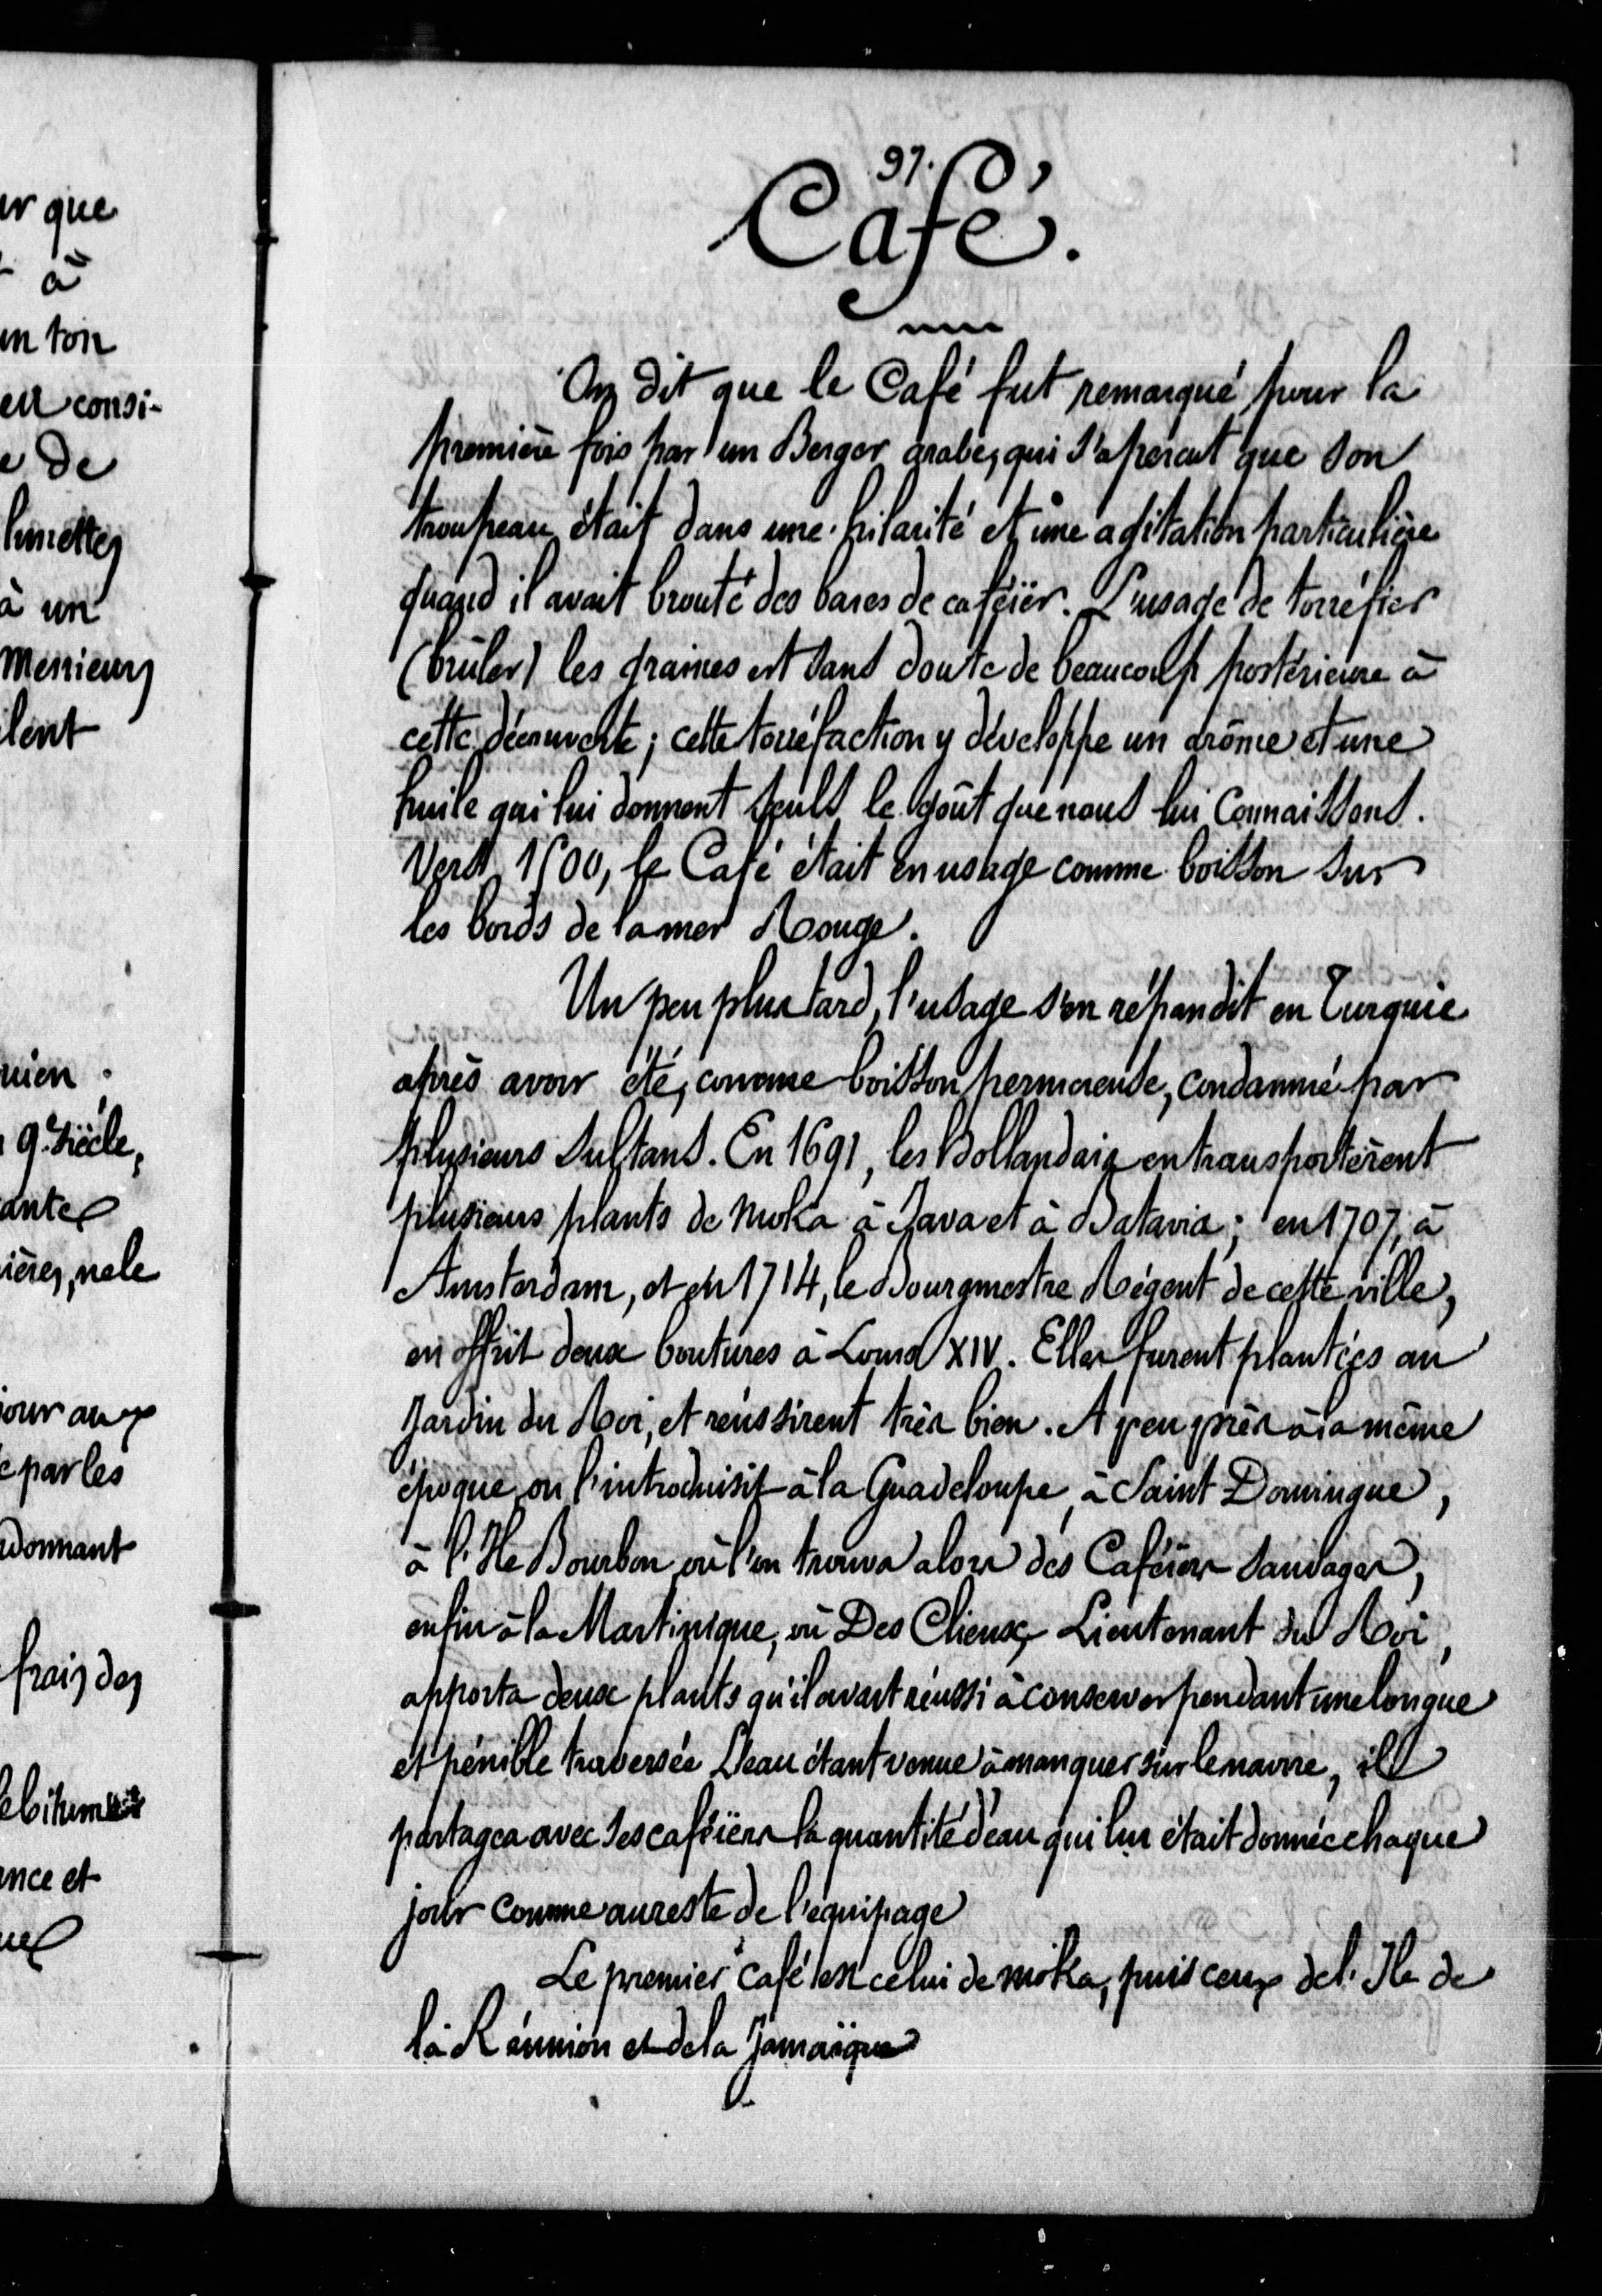 ur que
à
un ton
en consi-
e de
lunettes
à un
Messieurs
lent
9e siècle,
ières, ne le
jour aux
e par les
donnant
frais des
ence et
97.
Café.
On dit que le Café fut remarqué pour la
première fois par un Berger arabe, qui s'aperçut que son
troupeau était dans une hilarité et une agitation particulière
quand il avait brouté des baies de caféïer. L'usage de torréfier
(brûler) les graines est sans doute de beaucoup postérieure à
cette découverte ; cette torréfaction y développe un arôme et une
huile qui lui donnent seuls le goût que nous lui connaissons.
Vers 1500, le Café était en usage comme boisson sur
les bords de la mer Rouge.
Un peu plus tard, l'usage s'en répandit en Turquie
après avoir été, comme boisson pernicieuse, condamné par
plusieurs Sultans. En 1691, les Hollandais en transportèrent
plusieurs plants de moka à Java et à Batavia ; en 1707, à
Amsterdam, et en 1714, le Bourgmestre Régent de cette ville,
en offrit deux boutures à Louis XIV. Elles furent plantées au
Jardin du Roi, et réussirent très bien. A peu près à la même
époque on l'introduisit à la Guadeloupe, à Saint Domingue,
à l'Ile Bourbon où l'on trouva alors des Caféiers sauvages,
enfin à la Martinique, où Des Clieux, Lieutenant du Roi,
apporta deux plants qu'il avait réussi à conserver pendant une longue
et pénible traversée L'eau étant venue à manquer sur le navire, il
partagea avec ses caféïers la quantité d'eau qui lui était donnée chaque
jour comme au reste de l'équipage
Le premier café est celui de moka, puis ceux de l'Ile de
la Réunion et de la Jamaïque